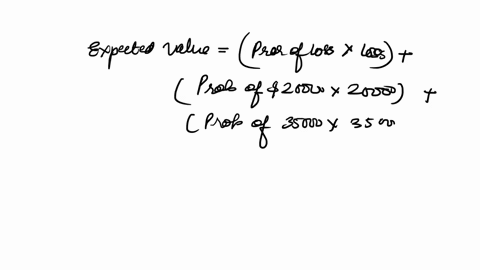 Expected Value = (Prob of loss × loss) +
(Prob of $20000 × 20000) +
(Prob of 35000 × 3500